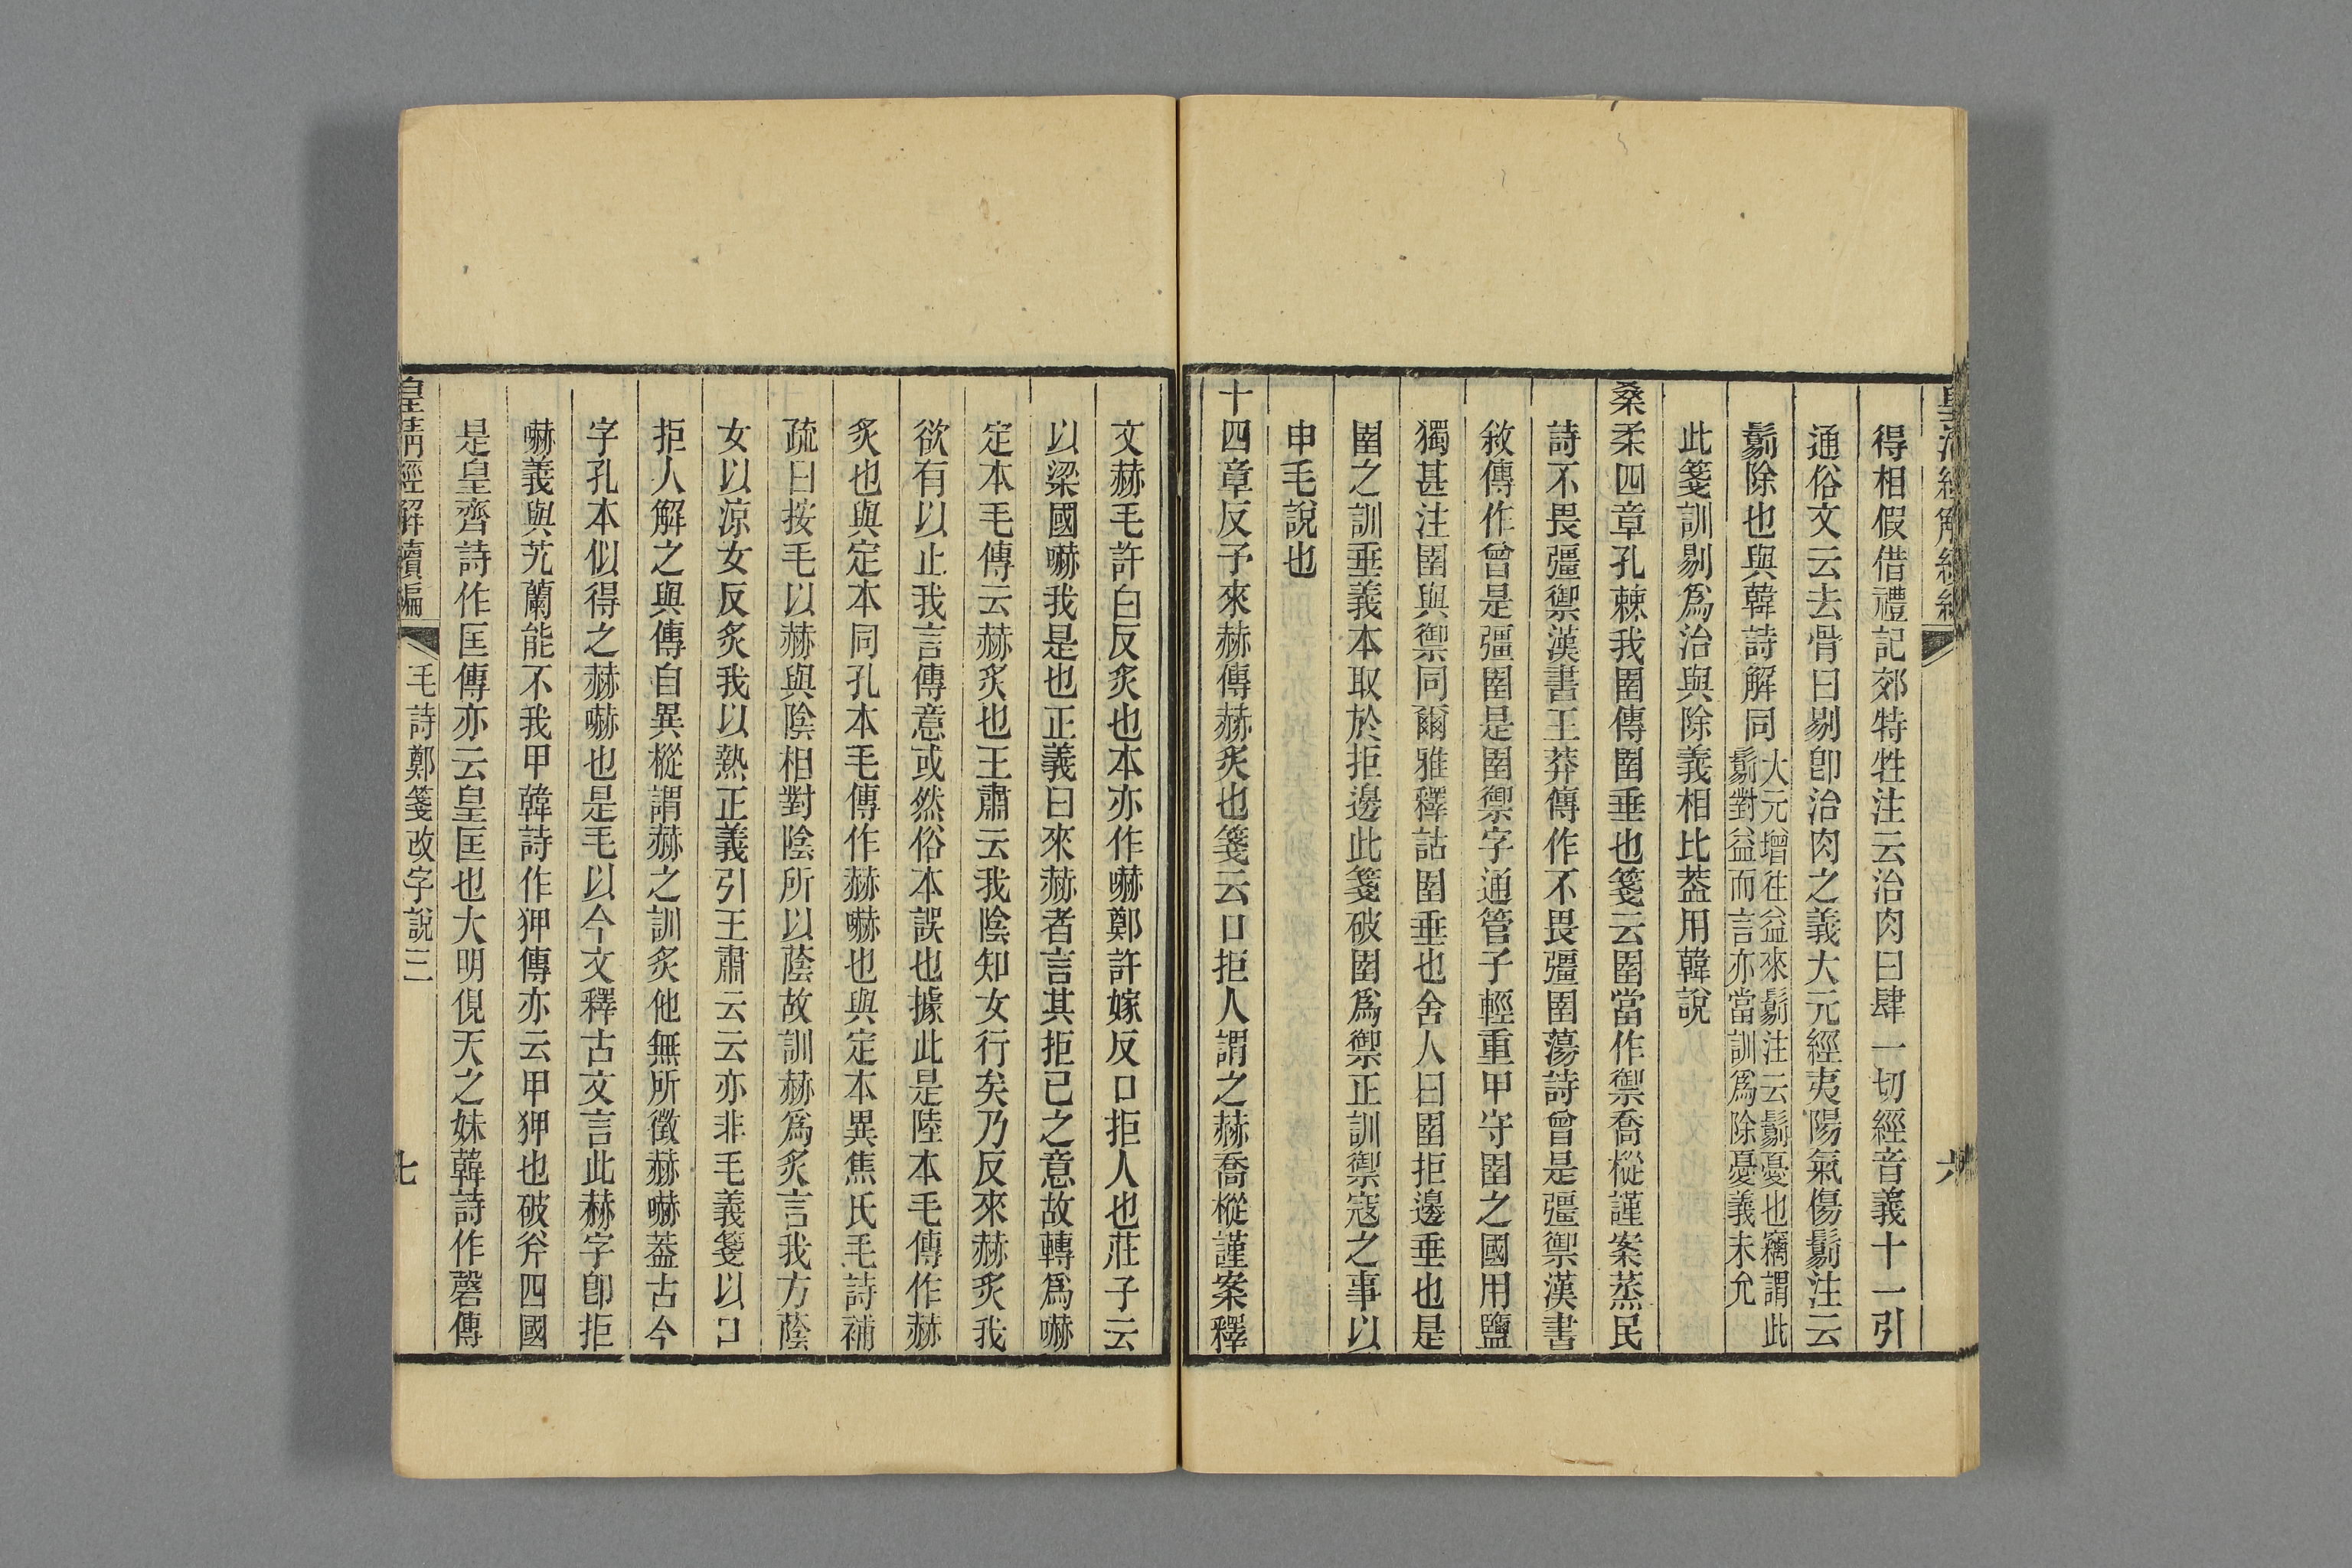 得相假借禮記郊特牲注云治肉曰肆一切經音義十一引
通俗文云去骨曰剔卽治肉之義大元經夷陽氣傷鬄注云
鬄除也與韓詩解同
大元增往益來鬄注云鬄憂也竊謂此
鬄對益而言亦當訓爲除憂義未允
此箋訓剔爲治與除義相比葢用韓說
桑柔四章孔棘我圉傳圉垂也箋云圉當作禦喬樅謹案蒸民
詩不畏彊禦漢書王莽傳作不畏彊圉蕩詩曾是彊禦漢書
敘傳作曾是彊圉是圉禦字通管子輕重甲守圉之國用鹽
獨甚注圉與禦同爾雅釋詁圉垂也舍人曰圉拒邊垂也是
圉之訓垂義本取於拒邊此箋破圉爲禦正訓禦寇之事以
申毛說也
十四章反予來赫傳赫炙也箋云口拒人謂之赫喬樅謹案釋
六
文赫毛許白反炙也本亦作嚇鄭許嫁反口拒人也莊子云
以梁國嚇我是也正義曰來赫者言其拒已之意故轉爲嚇
定本毛傳云赫炙也王肅云我陰知女行矣乃反來赫炙我
欲有以止我言傳意或然俗本誤也據此是陸本毛傳作赫
炙也與定本同孔本毛傳作赫嚇也與定本異焦氏毛詩補
疏曰按毛以赫與陰相對陰所以蔭故訓赫爲炙言我方蔭
女以涼女反炙我以熱正義引王肅云云亦非毛義箋以口
拒人解之與傳自異樅謂赫之訓炙他無所徵赫嚇葢古今
字孔本似得之赫嚇也是毛以今文釋古文言此赫字卽拒
嚇義與艽蘭能不我甲韓詩作狎傳亦云甲狎也破斧四國
是皇齊詩作匡傳亦云皇匡也大明俔天之妹韓詩作磬傳
皇淸經解續編
毛詩鄭箋改字說三
七